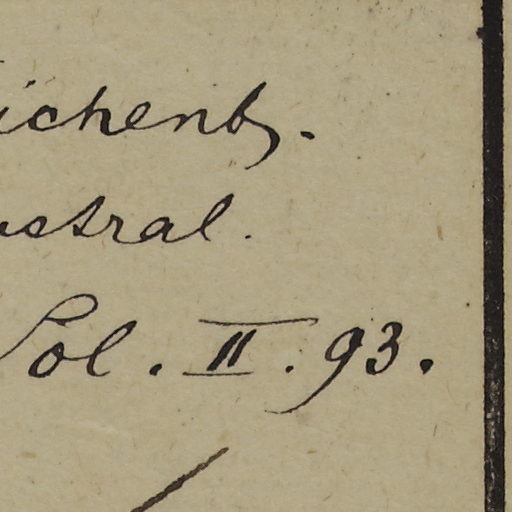 ichenb.
stral.
Pol. II. 93.